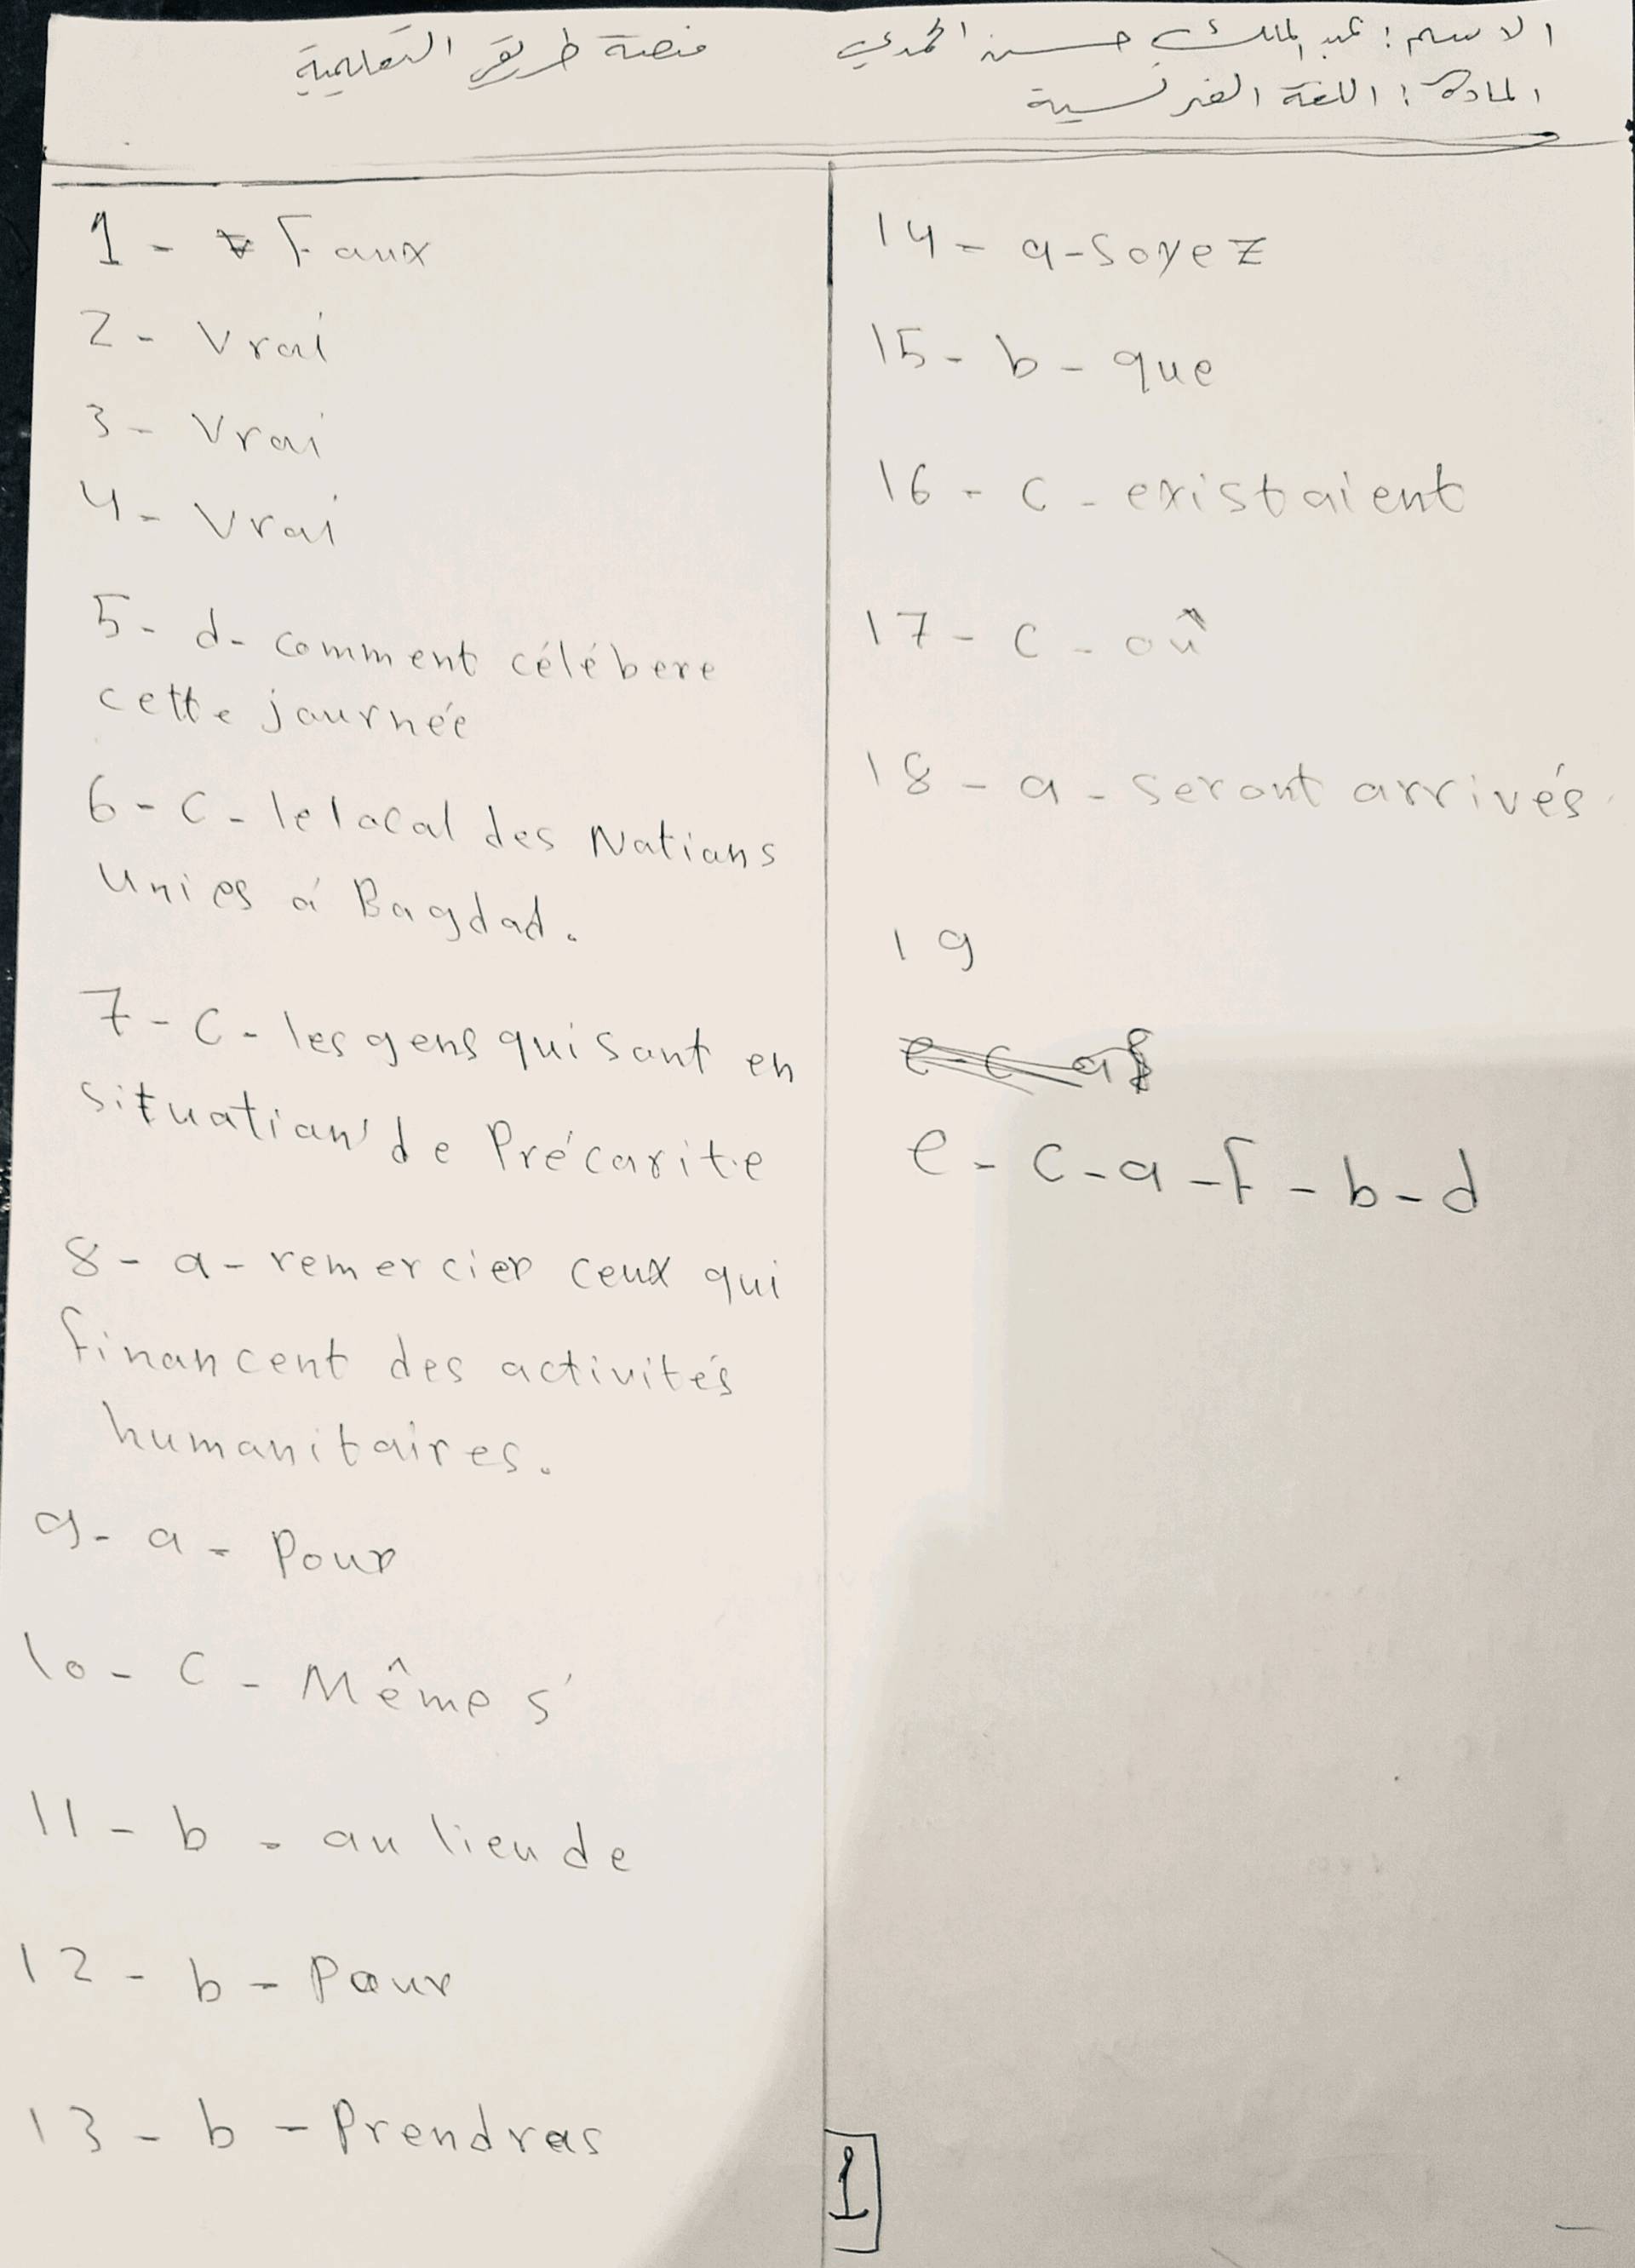 الاسم : عبد الملك حسن المحمدي منصة طريقي التعليمية
المادة : اللغة الفرنسية
1 - Faux
2 - Vrai
3 - Vrai
4 - Vrai
5 - d - comment célébere
cette journée
6 - C - le local des Nations
Unies à Bagdad.
7 - C - les gens qui sont en
situation de Précarite
8 - a - remercier ceux qui
financent des activités
humanitaires.
9 - a - Pour
10 - C - Même s'
11 - b - au lieu de
12 - b - Pour
13 - b - Prendras
14 - a - Soyez
15 - b - que
16 - C - existaient
17 - C - où
18 - a - seront arrivés.
19
e - c - a f
e - c - a - F - b - d
1